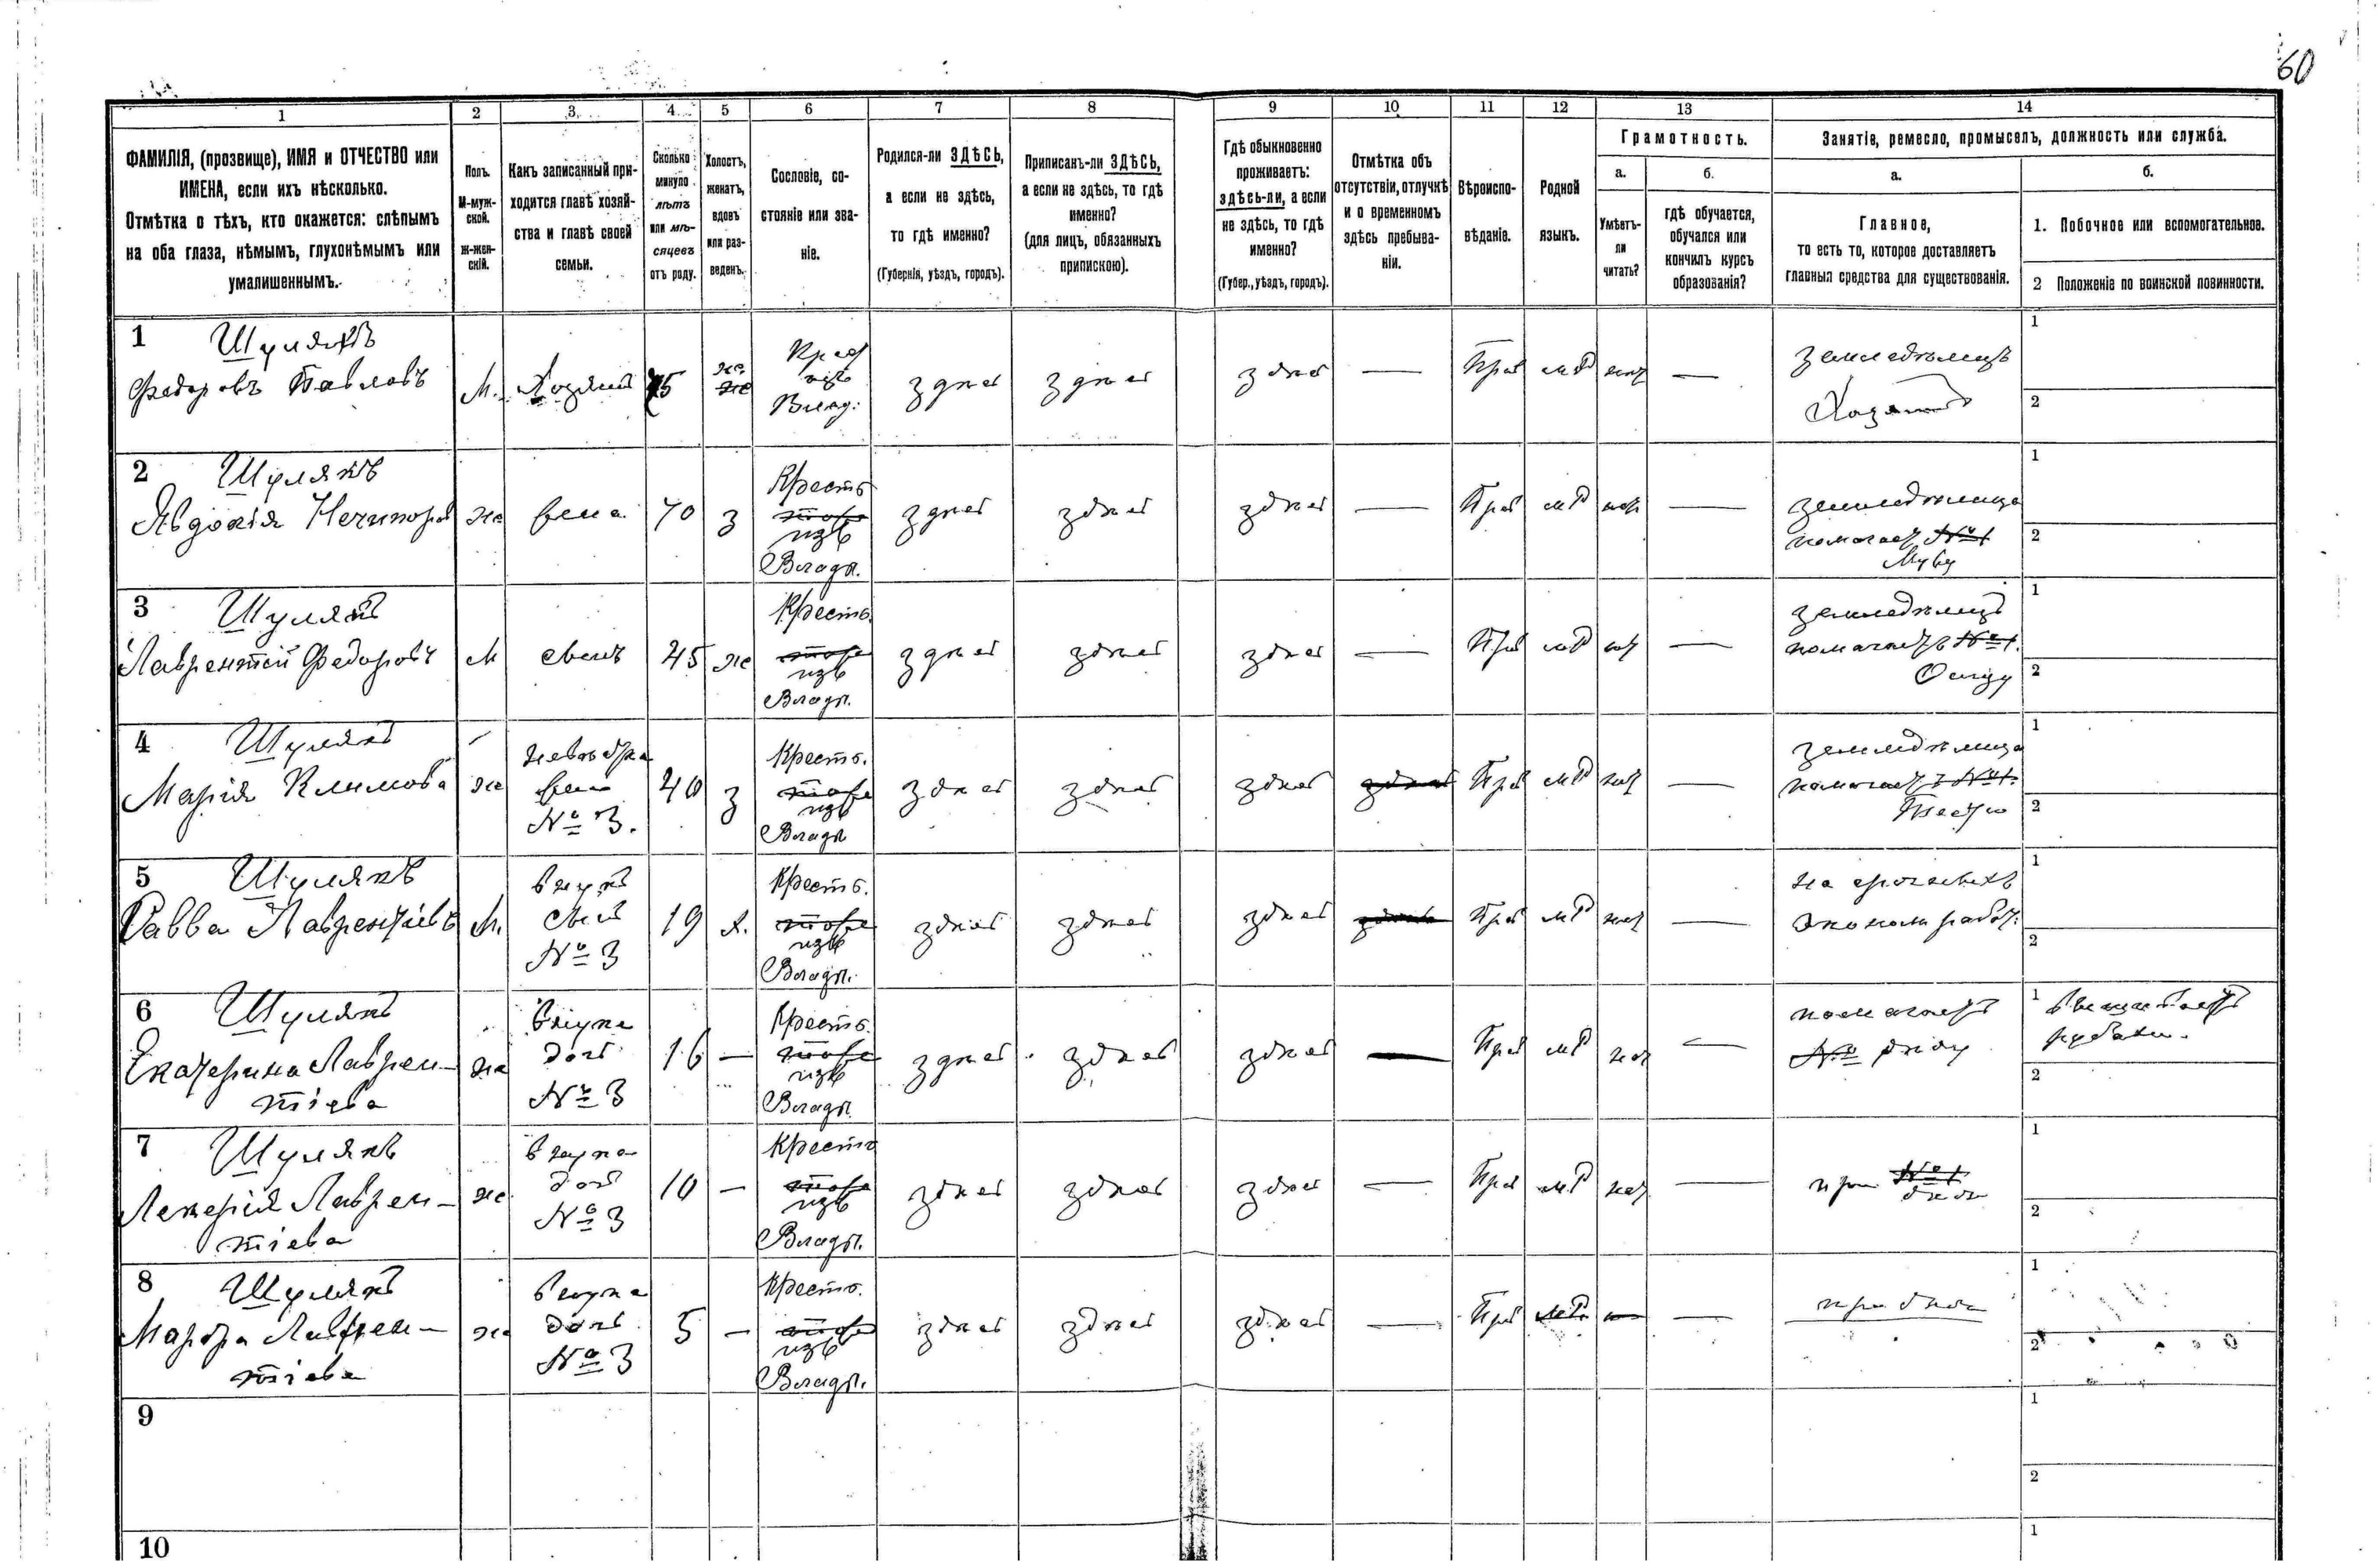 60
1 2 3 4 5 6 7 8 9 10 11 12 13 14
ФАМИЛІЯ, (прозвище), ИМЯ и ОТЧЕСТВО или
ИМЕНА, если ихъ нѣсколько.
Отмѣтка о тѣхъ, кто окажется: слѣпымъ
на оба глаза, нѣмымъ, глухонѣмымъ или
умалишеннымъ.
Полъ.
М-муж-
ской.
Ж-жен-
скій.
Какъ записанный при-
ходится главѣ хозяй-
ства и главѣ своей
семьи.
Сколько
минуло
лѣтъ
или мѣ-
сяцевъ
отъ роду.
Холостъ,
женатъ,
вдовъ
или раз-
веденъ.
Сословіе, со-
стояніе или зва-
ніе.
Родился-ли ЗДѢСЬ,
а если не здѣсь,
то гдѣ именно?
(Губернія, уѣздъ, городъ).
Приписанъ-ли ЗДѢСЬ,
а если не здѣсь, то гдѣ
именно?
(для лицъ, обязанныхъ
припискою).
Гдѣ обыкновенно
проживаетъ:
здѣсь-ли, а если
не здѣсь, то гдѣ
именно?
(Губер., уѣздъ, городъ).
Отмѣтка объ
отсутствіи, отлучкѣ
и о временномъ
здѣсь пребыва-
ніи.
Вѣроиспо-
вѣданіе.
Родной
языкъ.
Грамотность.
а.
Умѣетъ-
ли
читать?
б.
гдѣ обучается,
обучался или
кончилъ курсъ
образованія?
Занятіе, ремесло, промыселъ, должность или служба.
а.
Главное,
то есть то, которое доставляетъ
главныя средства для существованія.
б.
1. Побочное или вспомогательное.
2 Положеніе по воинской повинности.
1 Шулякъ
Федоровъ Павловъ
М. Хозяин 75 же
Крест
изъ
Влад.
здесь здесь здесь — Прав мР нет —
земледелецъ
Хозяин
1
2
2 Шулякъ
Явдокія Нечипоров
же жена 70 з
Кресть
изъ
Владл.
здесь здесь здесь — Прав мР нет —
земледелица
помогает №1
Мужу
1
2
3 Шулякъ
Лаврентій Федоровъ
М сынъ 45 же
Кресть.
изъ
Владл.
здесь здесь здесь — Прав мР нет —
земледелецъ
помогаетъ №1.
Отцу
1
2
4 Шулякъ
Марія Климова
же невестка
жена
№ 3.
40 з
Кресть.
изъ
Владл
здесь здесь здесь здесь Прав мР нет —
земледелица
помогает №1.
Тестю
1
2
5 Шулякъ
Савва Лаврентіевъ
М.
внукъ
сынъ
№ 3
19 х.
Кресть.
изъ
Владл.
здесь здесь здесь Прав мР нет —
эконом работ.
1
2
6 Шулякъ
Екатерина Лаврен-
тіева
же
внучка
доч
№ 3
16 —
Кресть.
изъ
Владл.
здесь здесь здесь — Прав мР нет —
помогаетъ
№
1 вышиваетъ
рубахи.
2
7 Шулякъ
Лекерія Лаврен-
тіева
же
внучка
доч
№ 3
10 —
Кресть
изъ
Владл.
здесь здесь здесь — Прав мР нет —
при №1
1
2
8 Шулякъ
Марфа Лаврен-
тіева
же
внучка
доч
№ 3
5 —
Кресть.
изъ
Владл.
здесь здесь здесь — Прав мР —
при
1
2
9
1
2
10
1